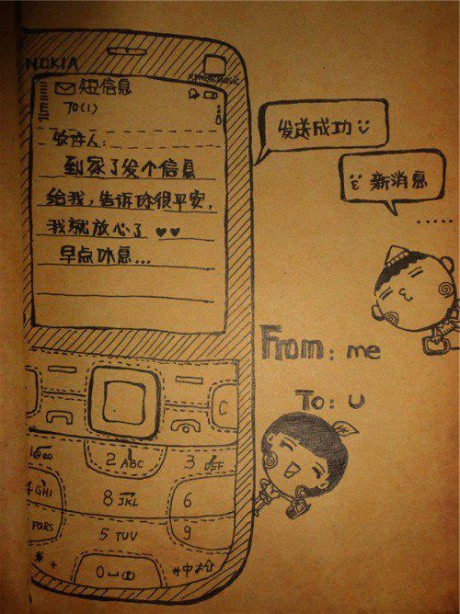 NOKIA
短信息
70(1)
收件人:
到家了发个信息
给我,告诉你很平安,
我就放心了
早点休息...
发送成功
新消息
......
From: me
To: U
C
2 ABC
3 DEF
4 GHI
8 JKL
6
5 TUV
9
* +
0